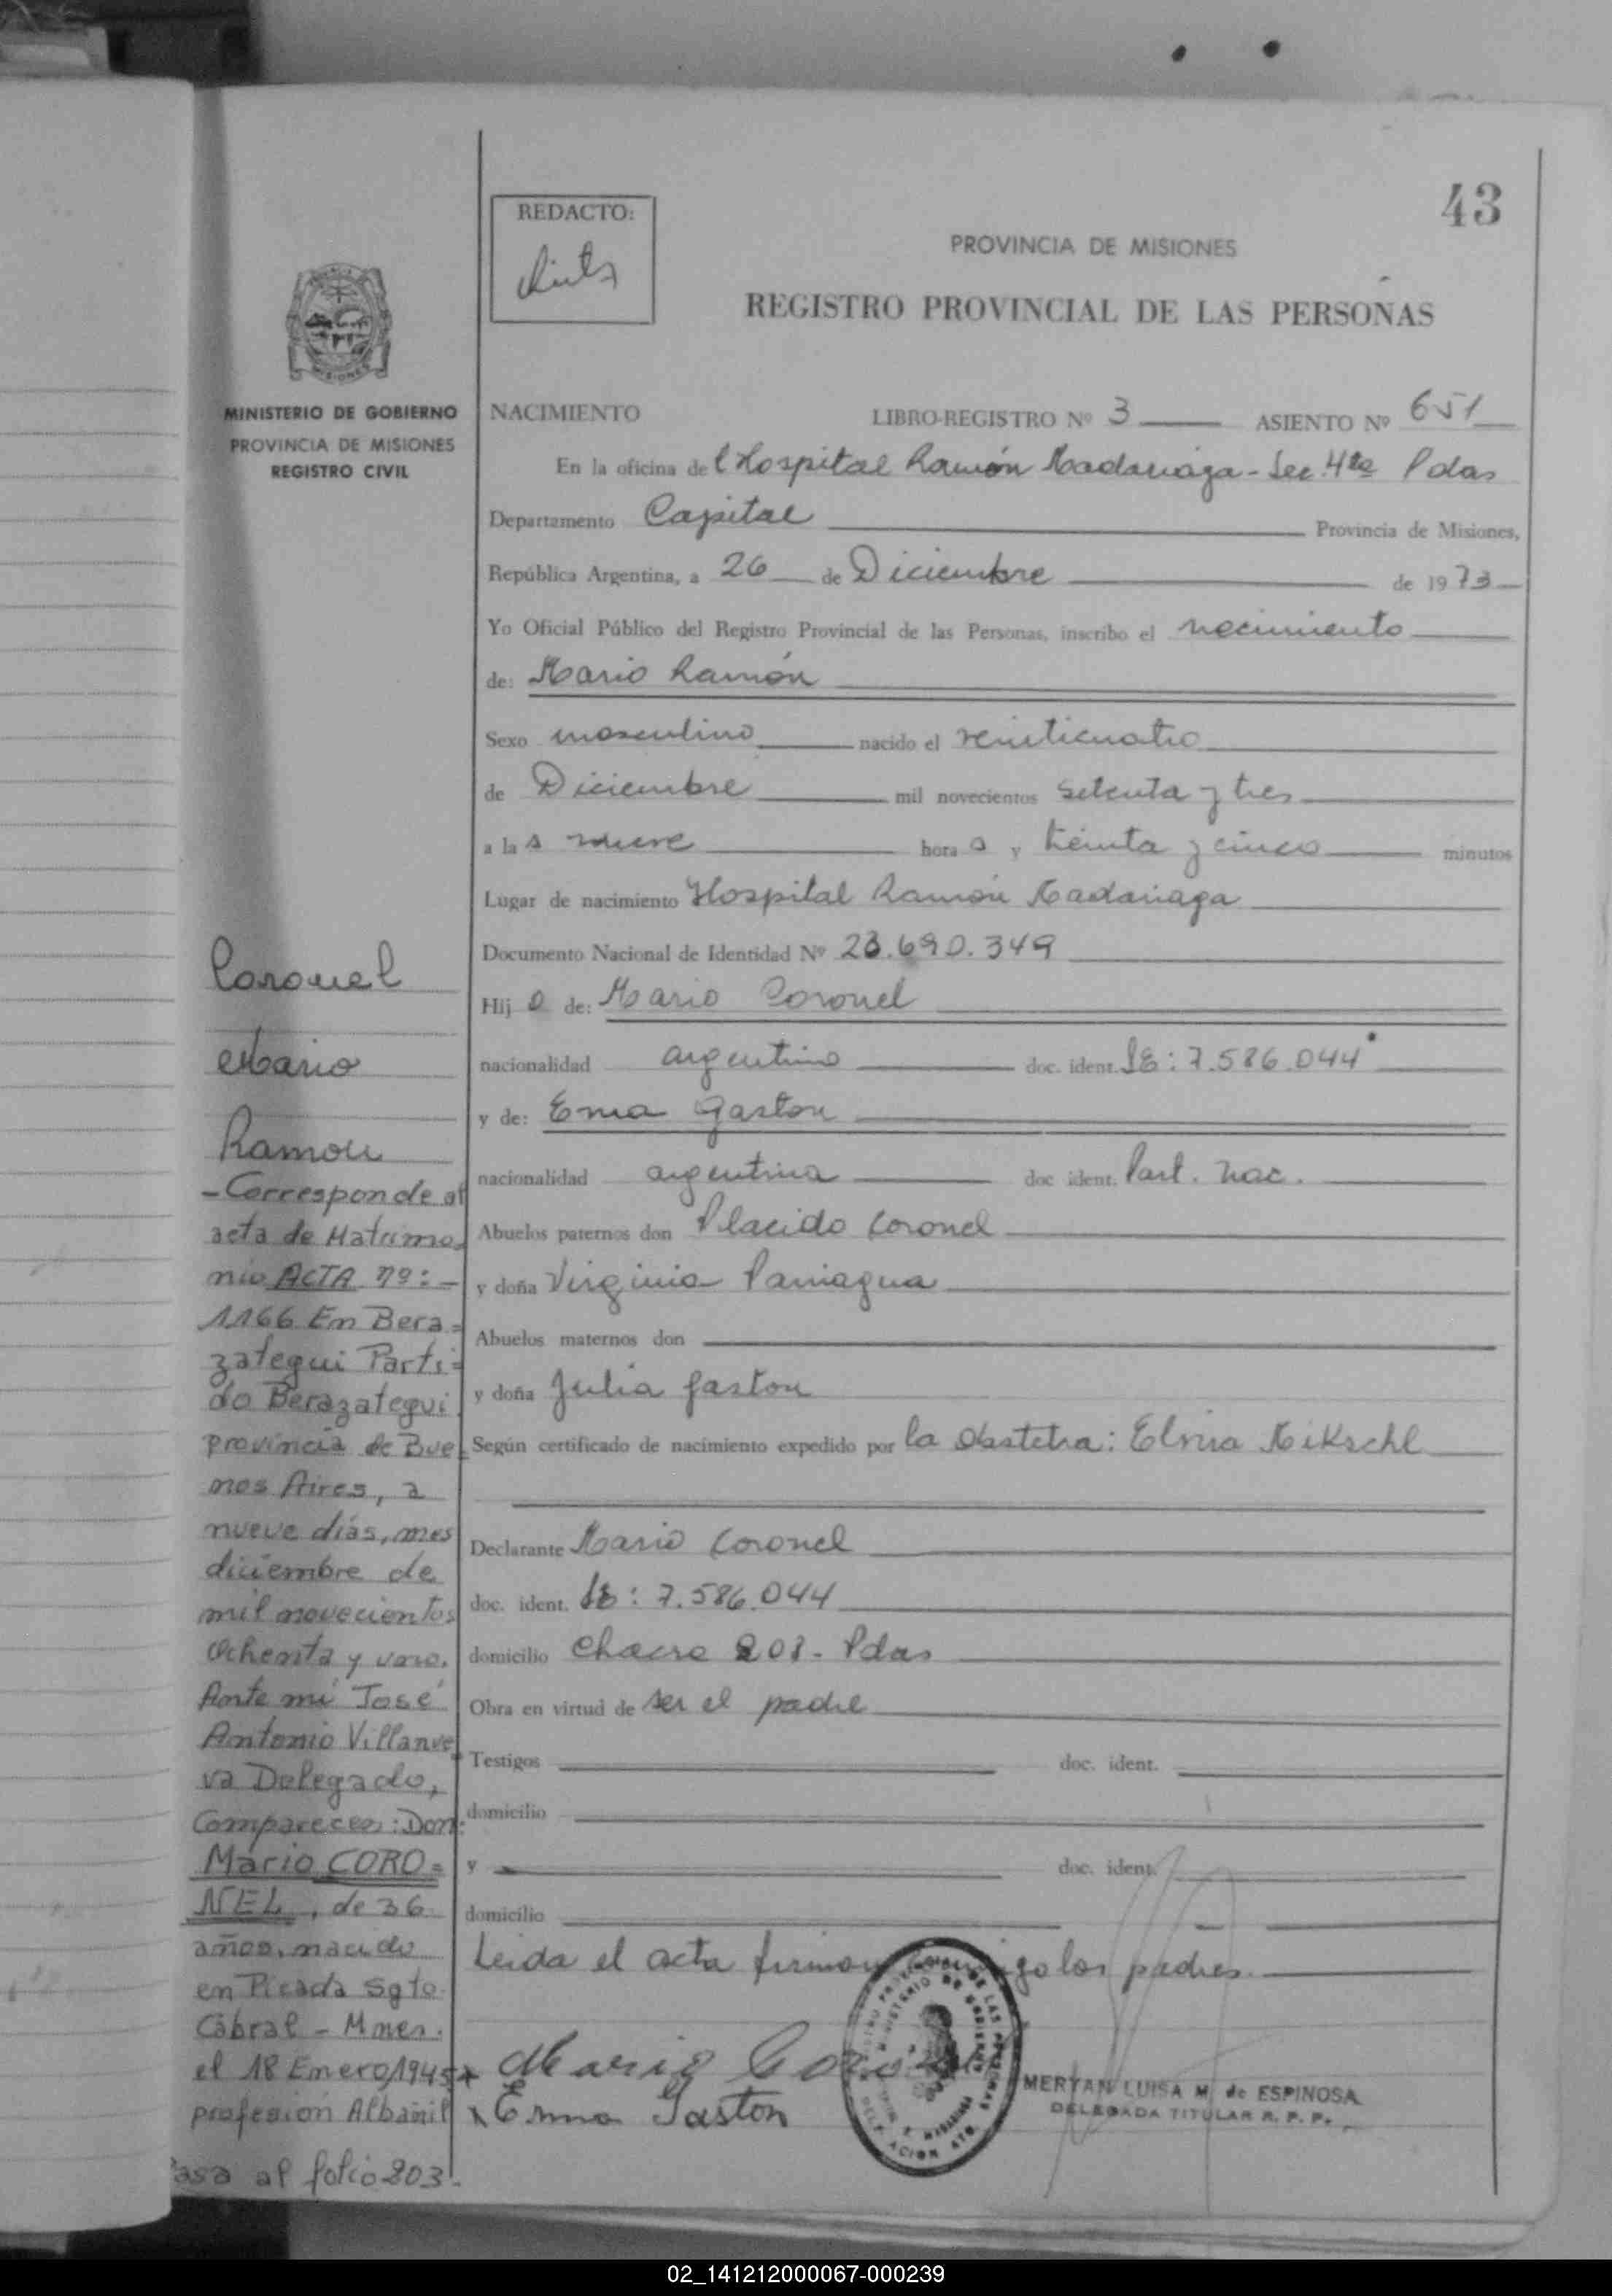 43
REDACTO:
PROVINCIA DE MISIONES
REGISTRO PROVINCIAL DE LAS PERSONAS
MISIONES
MINISTERIO DE GOBIERNO
PROVINCIA DE MISIONES
REGISTRO CIVIL
NACIMIENTO LIBRO-REGISTRO Nº 3 ASIENTO Nº 651
En la oficina del Hospital Ramón Madariaga - Sec. 4ta Pdas
Departamento Capital Provincia de Misiones,
República Argentina, a 26 de Diciembre de 1973
Yo Oficial Público del Registro Provincial de las Personas, inscribo el nacimiento
de: Mario Ramón
Sexo masculino nacido el veinticuatro
de Diciembre mil novecientos setenta y tres
a las nueve horas y treinta y cinco minutos
Lugar de nacimiento Hospital Ramón Madariaga
Documento Nacional de Identidad Nº 23.690.349
Hijo de: Mario Coronel
nacionalidad argentino doc. ident. LE: 7.586.044
y de: Ema Gaston
nacionalidad argentina doc. ident. Part. nac.
Abuelos paternos don Placido Coronel
y doña Virginia Paniagua
Abuelos maternos don
y doña Julia Gaston
Según certificado de nacimiento expedido por la Obstetra: Elvira Mikschl
Declarante Mario Coronel
doc. ident. LE: 7.586.044
domicilio Chacra 208 - Pdas
Obra en virtud de ser el padre
Testigos doc. ident.
domicilio
y doc. ident.
domicilio
Leida el acta firman conmigo los padres.
Mario Coronel
Ema Gaston
MERYAN LUISA M. de ESPINOSA
DELEGADA TITULAR R. P. P.
Coronel
Mario
Ramon
- Corresponde al
acta de Matrimo=
nio ACTA nº: -
1166 En Bera=
zategui Parti=
do Berazategui
provincia de Bue=
nos Aires, a
nueve días, mes
diciembre de
mil novecientos
ochenta y uno.
Ante mí José
Antonio Villanue=
va Delegado,
Comparecen: Don:
Mario CORO=
NEL, de 36
años, nacido
en Picada Sgto.
Cabral - Mnes.
el 18 Enero 1945
profesión Albañil
Pasa al folio 203.
02_141212000067-000239